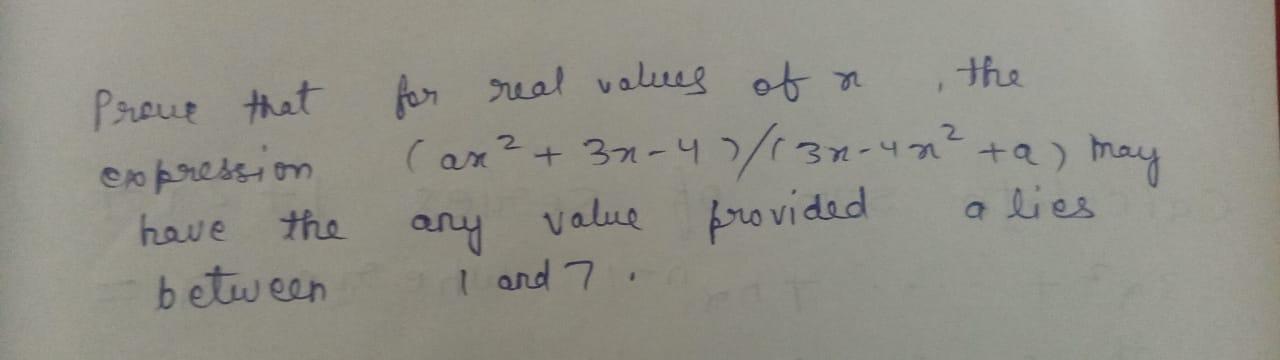 Prove that for real values of x , the
expression (ax² + 3x - 4)/(3x - 4x² + a) may
have the any value provided a lies
between 1 and 7.